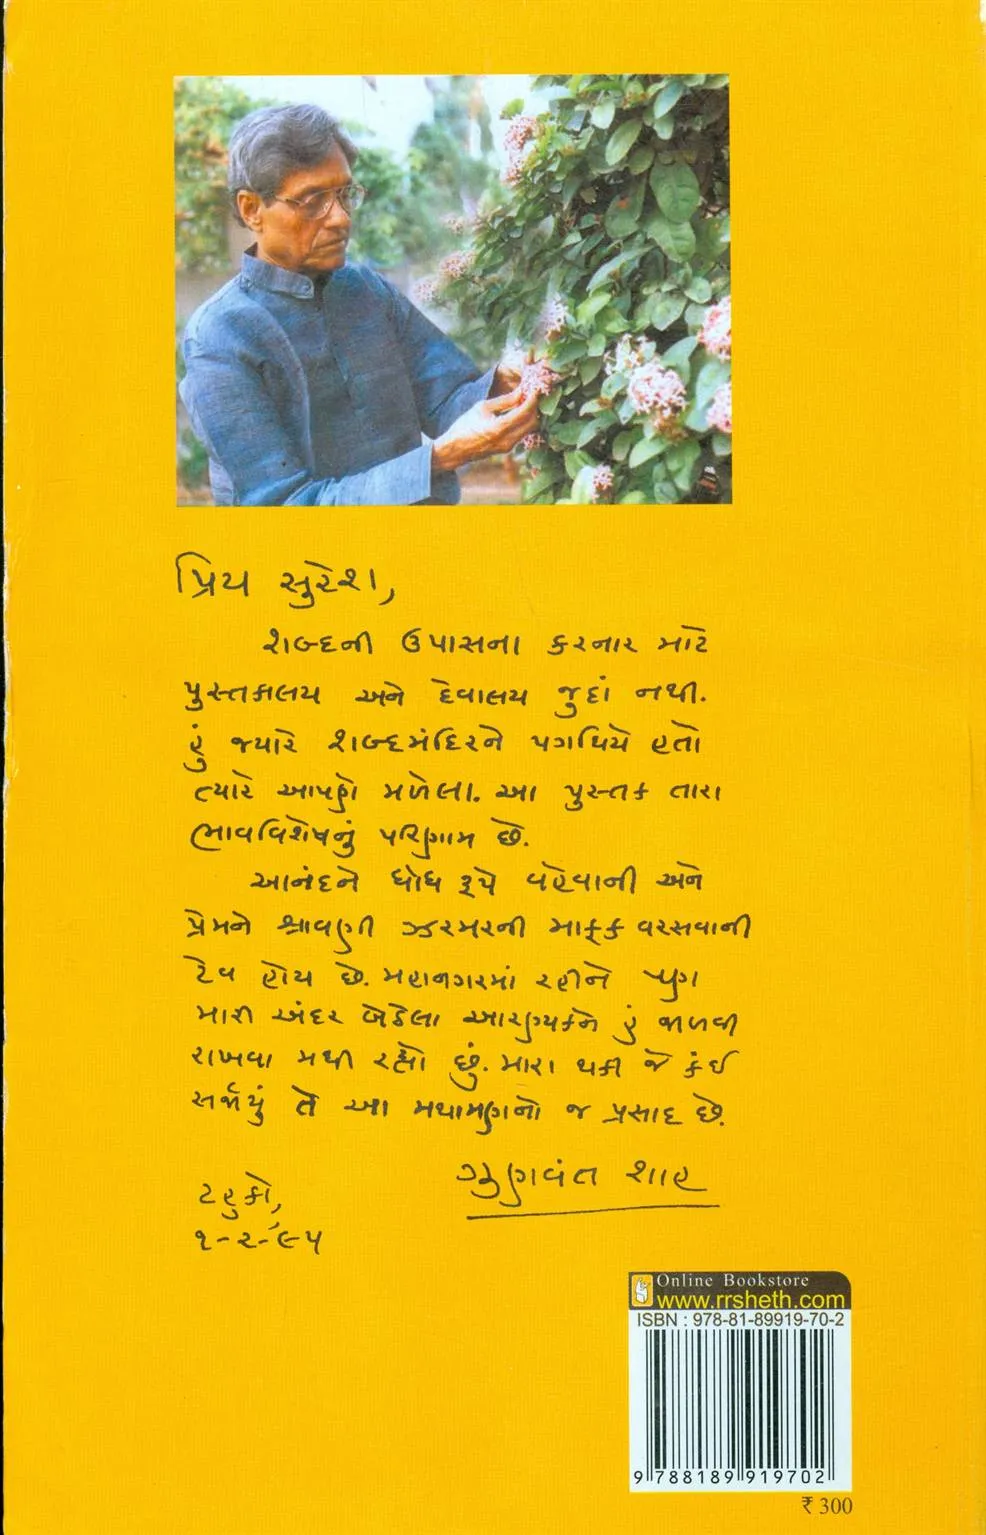 પ્રિય સુરેશ,
શબ્દની ઉપાસના કરનાર માટે
પુસ્તકાલય અને દેવાલય જુદાં નથી.
હું જ્યારે શબ્દમંદિરને પગથિયે હતો
ત્યારે આપણે મળેલા. આ પુસ્તક તારા
ભાવવિશેષનું પરિણામ છે.
આનંદને ધોધ રૂપે વહેવાની અને
પ્રેમને શ્રાવણી ઝરમરની માફક વરસવાની
ટેવ હોય છે. મહાનગરમાં રહીને
મારી અંદર બેઠેલા આરણ્યકને હું જાળવી
રાખવા મથી રહ્યો છું. મારા થકી જે કંઈ
સર્જાયું તે આ મથામણનો જ પ્રસાદ છે.
ગુણવંત શાહ
ટહુકો,
૧-૨-૯૫
Online Bookstore
www.rrsheth.com
ISBN : 978-81-89919-70-2
9 788189 919702
₹ 300